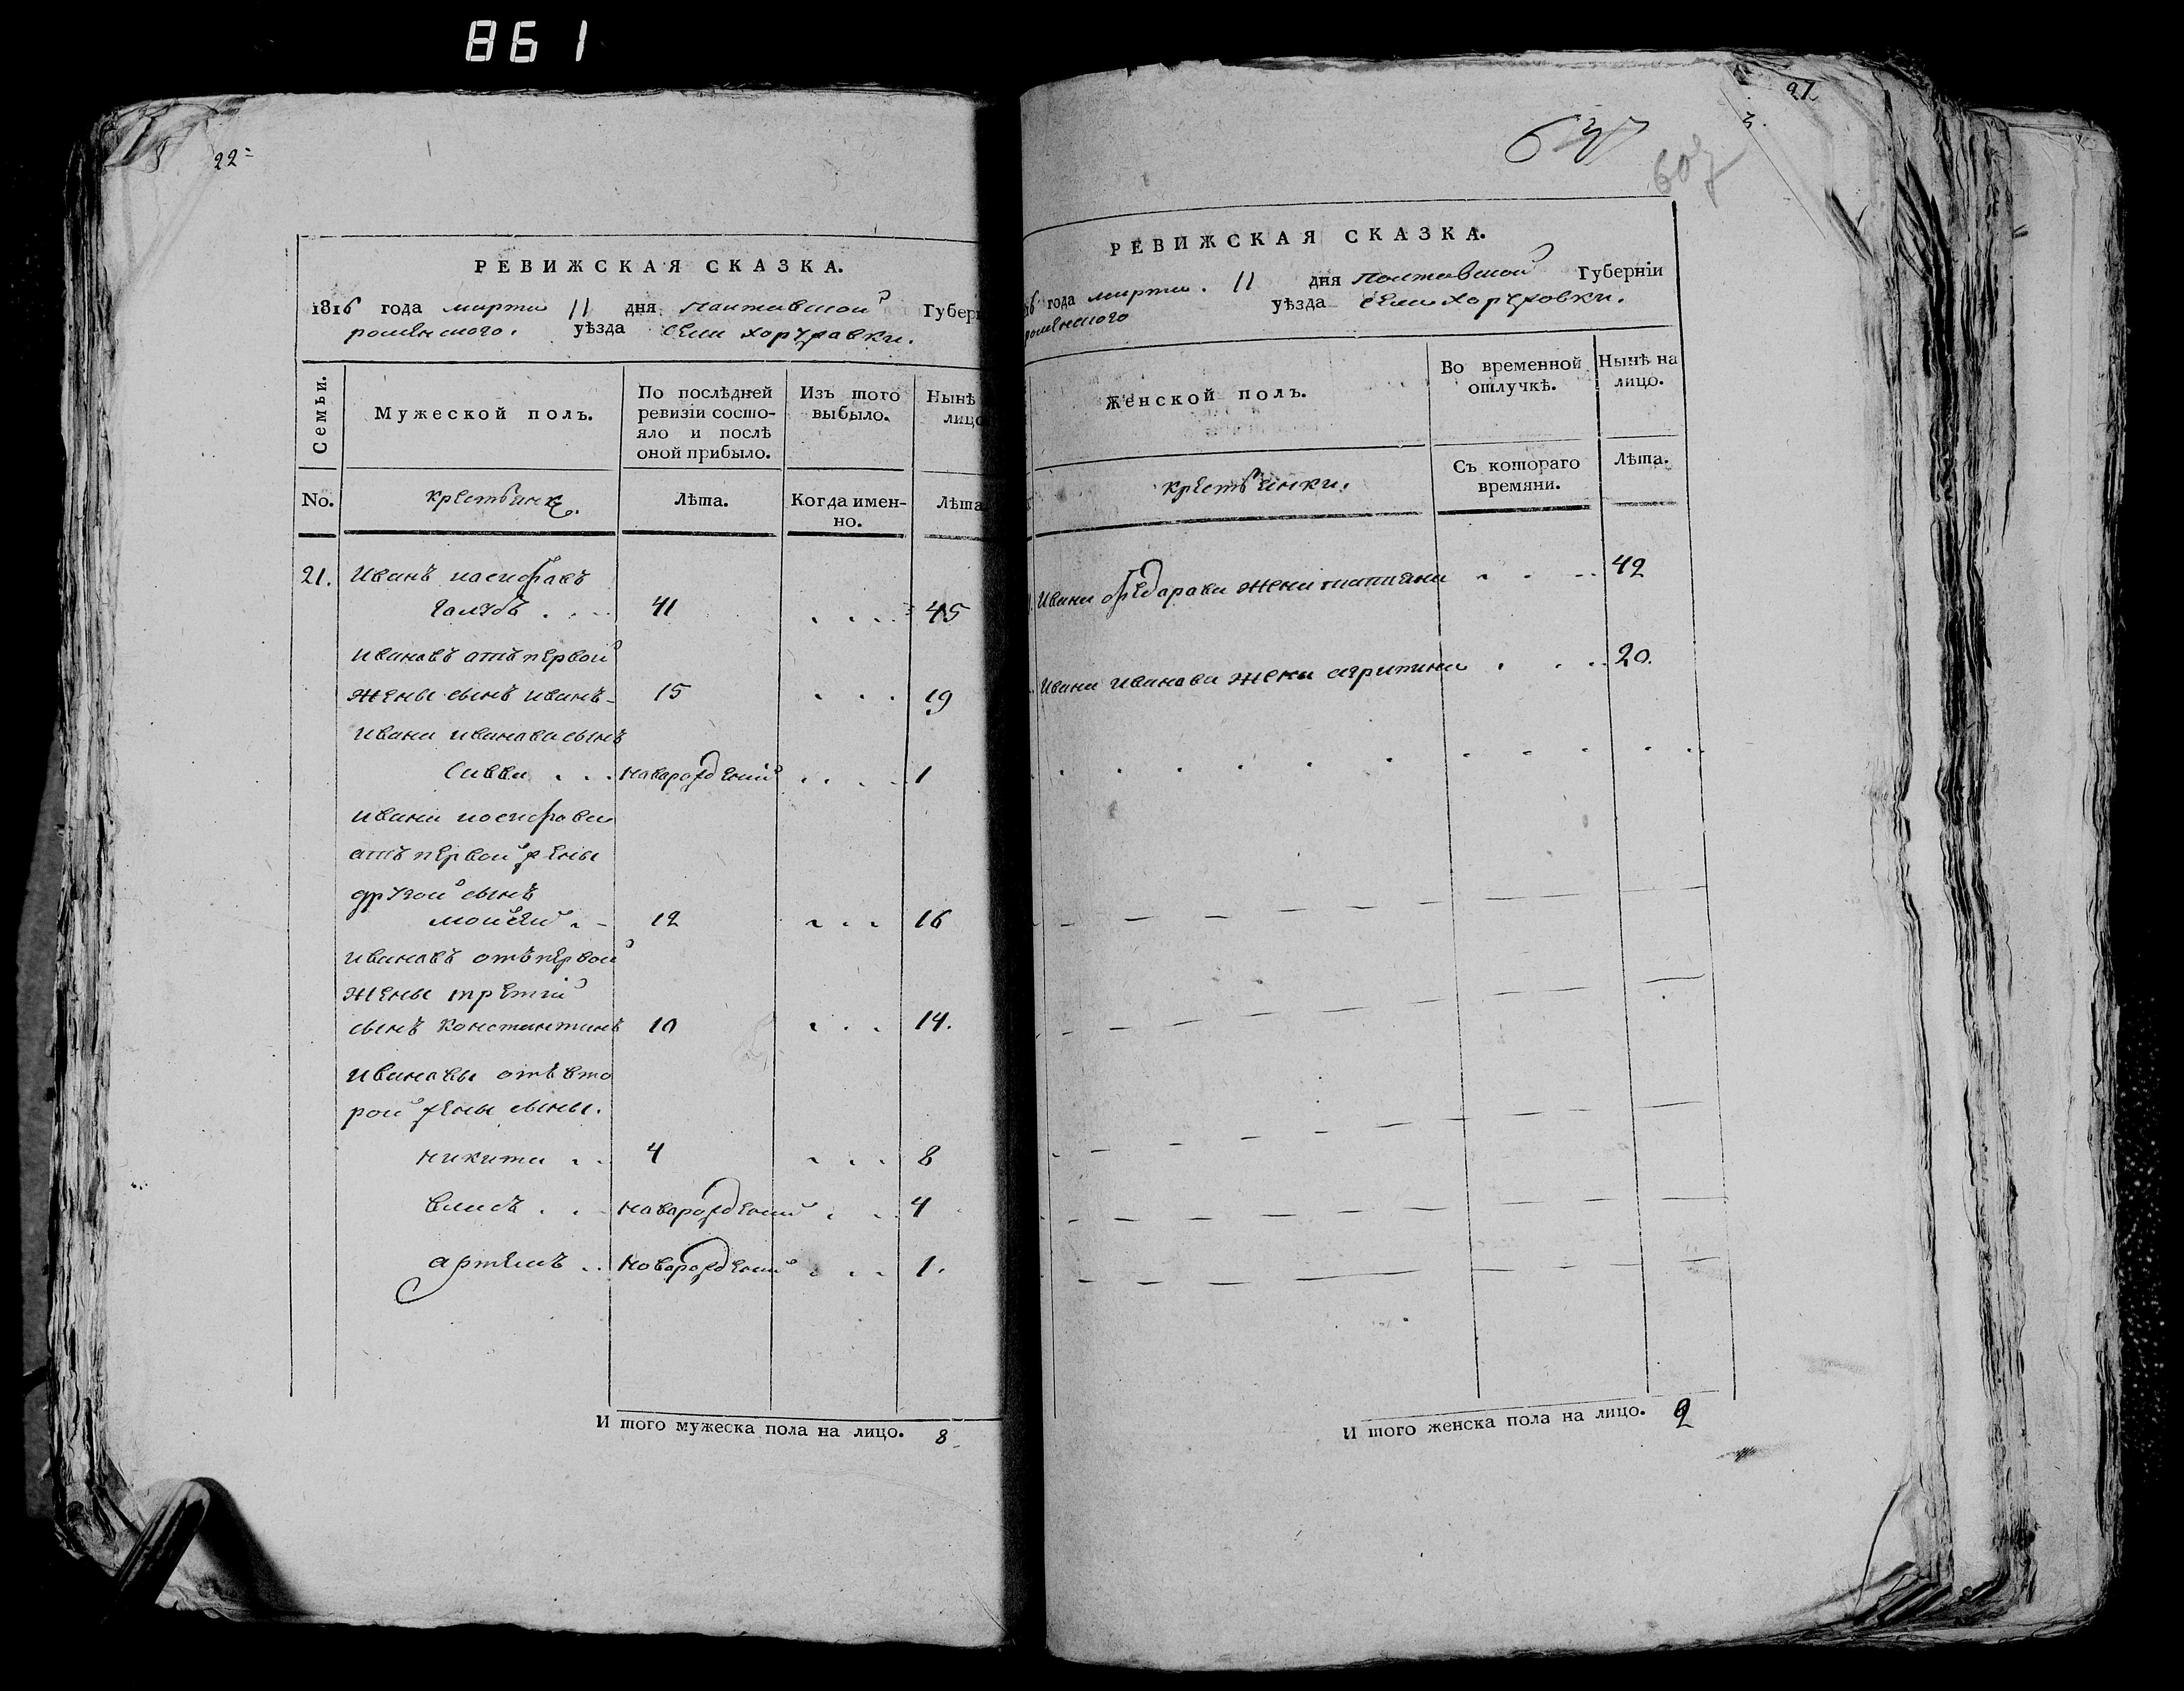 861
22
РЕВИЖСКАЯ СКАЗКА.
1816 года марта 11 дня Полтавской Губер
роменского. уѣзда села хоружовки.
Семьи.
Мужеской полъ.
По послѣдней ревизіи состо-
яло и послѣ оной прибыло.
Изъ того выбыло.
Нынѣ лицо
No.
крестьяне.
Лѣта.
Когда имен-
но.
Лѣта
21. Иванъ иосифовъ
41 45
ивановъ отъ первой
жены сынъ иванъ 15 19
ивана иванова сынъ
Савва новорожденний 1
ивана иосифова
отъ первой жены
другой сынъ
мойсей 12 16
ивановъ отъ первой
жены третій
сынъ константинъ 10 14.
ивановы отъ вто
рой жены сыны.
никита 4 8
власъ новорожденний 4
артемъ новорожденний 1.
И того мужеска пола на лицо. 8
21
637
607
РЕВИЖСКАЯ СКАЗКА.
16 года марта. 11 дня Полтавской Губерніи
роменского уѣзда села хоружовки.
Женской полъ.
Во временной отлучкѣ.
Нынѣ на лицо.
крестьянки.
Съ котораго времяни.
Лѣта.
Ивана жена татияна 42
Ивана иванова жена агрипина 20.
И того женска пола на лицо. 2